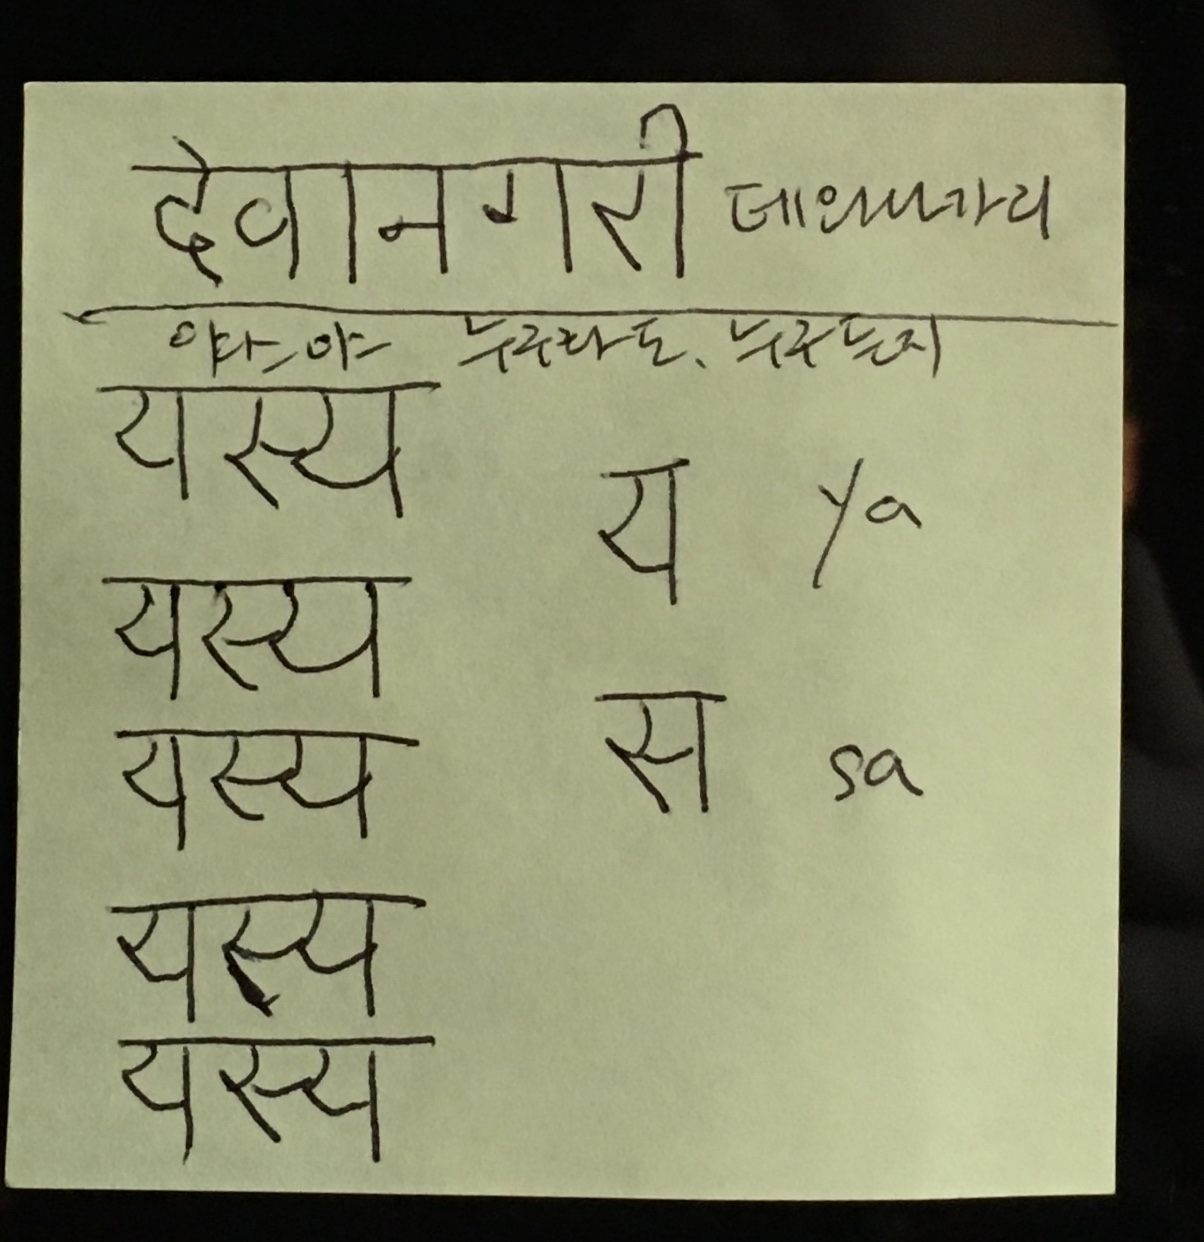 देवानगरी 데와나가리
야스야 누구라도, 누구든지
यस्य
य ya
यस्य
यस्य
स sa
यस्य
यस्य